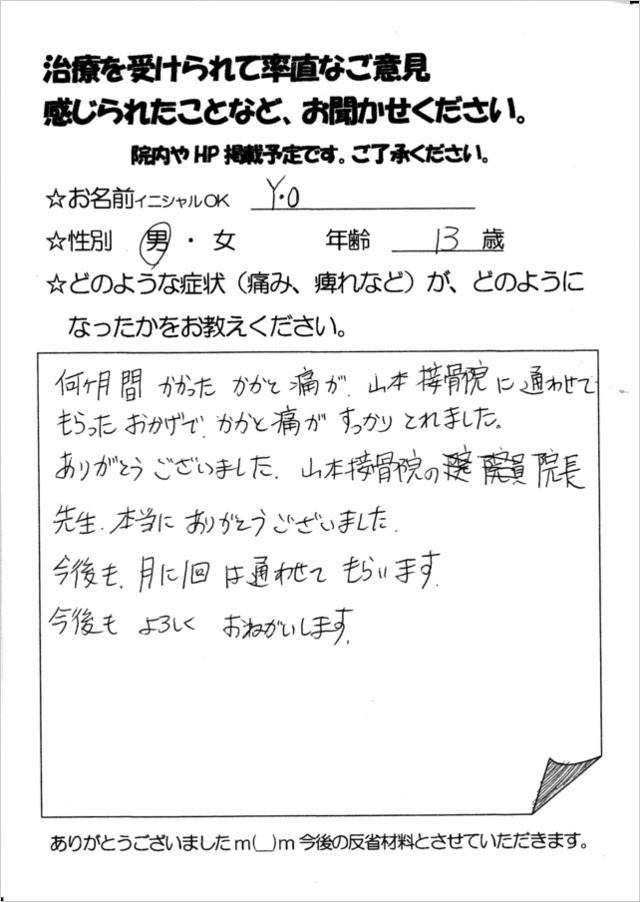 治療を受けられて率直なご意見
感じられたことなど、お聞かせください。
院内やHP掲載予定です。ご了承ください。
☆お名前イニシャルOK Y・O
☆性別 男・女 年齢 13 歳
☆どのような症状（痛み、痺れなど）が、どのように
なったかをお教えください。
何ヶ月間かかったかかと痛が、山本接骨院に通わせて
もらったおかげで、かかと痛がすっかりとれました。
ありがとうございました。山本接骨院の院長
先生、本当にありがとうございました。
今後も、月に1回は通わせてもらいます。
今後もよろしくおねがいします。
ありがとうございましたm(__)m今後の反省材料とさせていただきます。